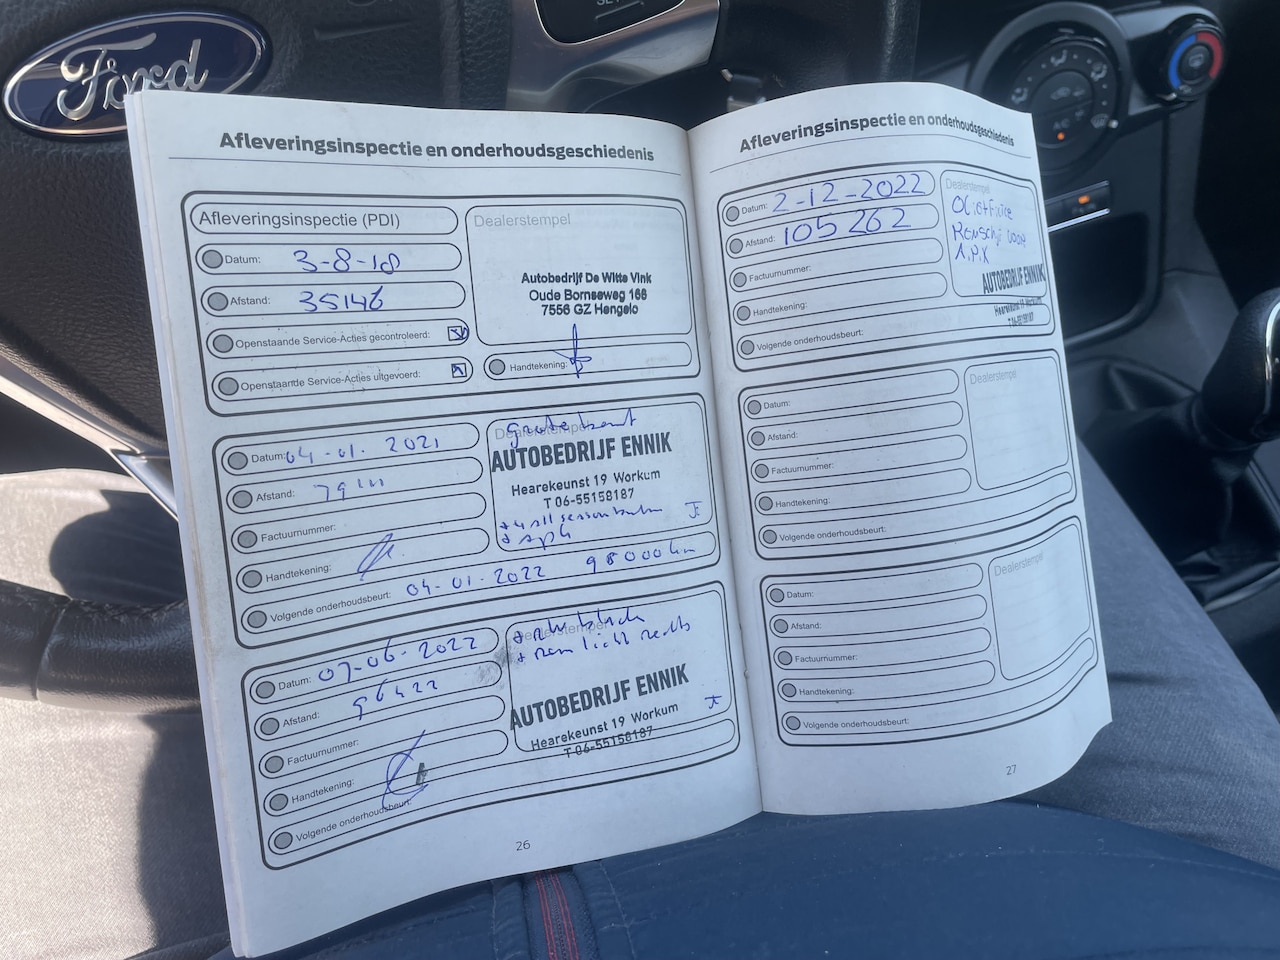 Ford
Afleveringsinspectie en onderhoudsgeschiedenis
Afleveringsinspectie (PDI)
Datum: 3-8-18
Afstand: 35146
Openstaande Service-Acties gecontroleerd:
Openstaande Service-Acties uitgevoerd:
Dealerstempel
Autobedrijf De Witte Vink
Oude Bornseweg 166
7556 GZ Hengelo
Handtekening:
Datum: 04-01-2021
Afstand:
Factuurnummer:
Handtekening:
Volgende onderhoudsbeurt: 04-01-2022 98000 km
grote beurt
Dealerstempel
AUTOBEDRIJF ENNIK
Hearekeunst 19 Workum
T 06-55158187
Datum: 07-06-2022
Afstand: 96422
Factuurnummer:
Handtekening:
Volgende onderhoudsbeurt:
Dealerstempel
+ rem licht rechts
AUTOBEDRIJF ENNIK
Hearekeunst 19 Workum
T 06-55158187
26
Afleveringsinspectie en onderhoudsgeschiedenis
Datum: 2-12-2022
Afstand: 105262
Factuurnummer:
Handtekening:
Volgende onderhoudsbeurt:
Dealerstempel
A.P.K
AUTOBEDRIJF ENNIK
Hearekeunst 19 Workum
T 06-55158187
Datum:
Afstand:
Factuurnummer:
Handtekening:
Volgende onderhoudsbeurt:
Dealerstempel
Datum:
Afstand:
Factuurnummer:
Handtekening:
Volgende onderhoudsbeurt:
Dealerstempel
27
AC